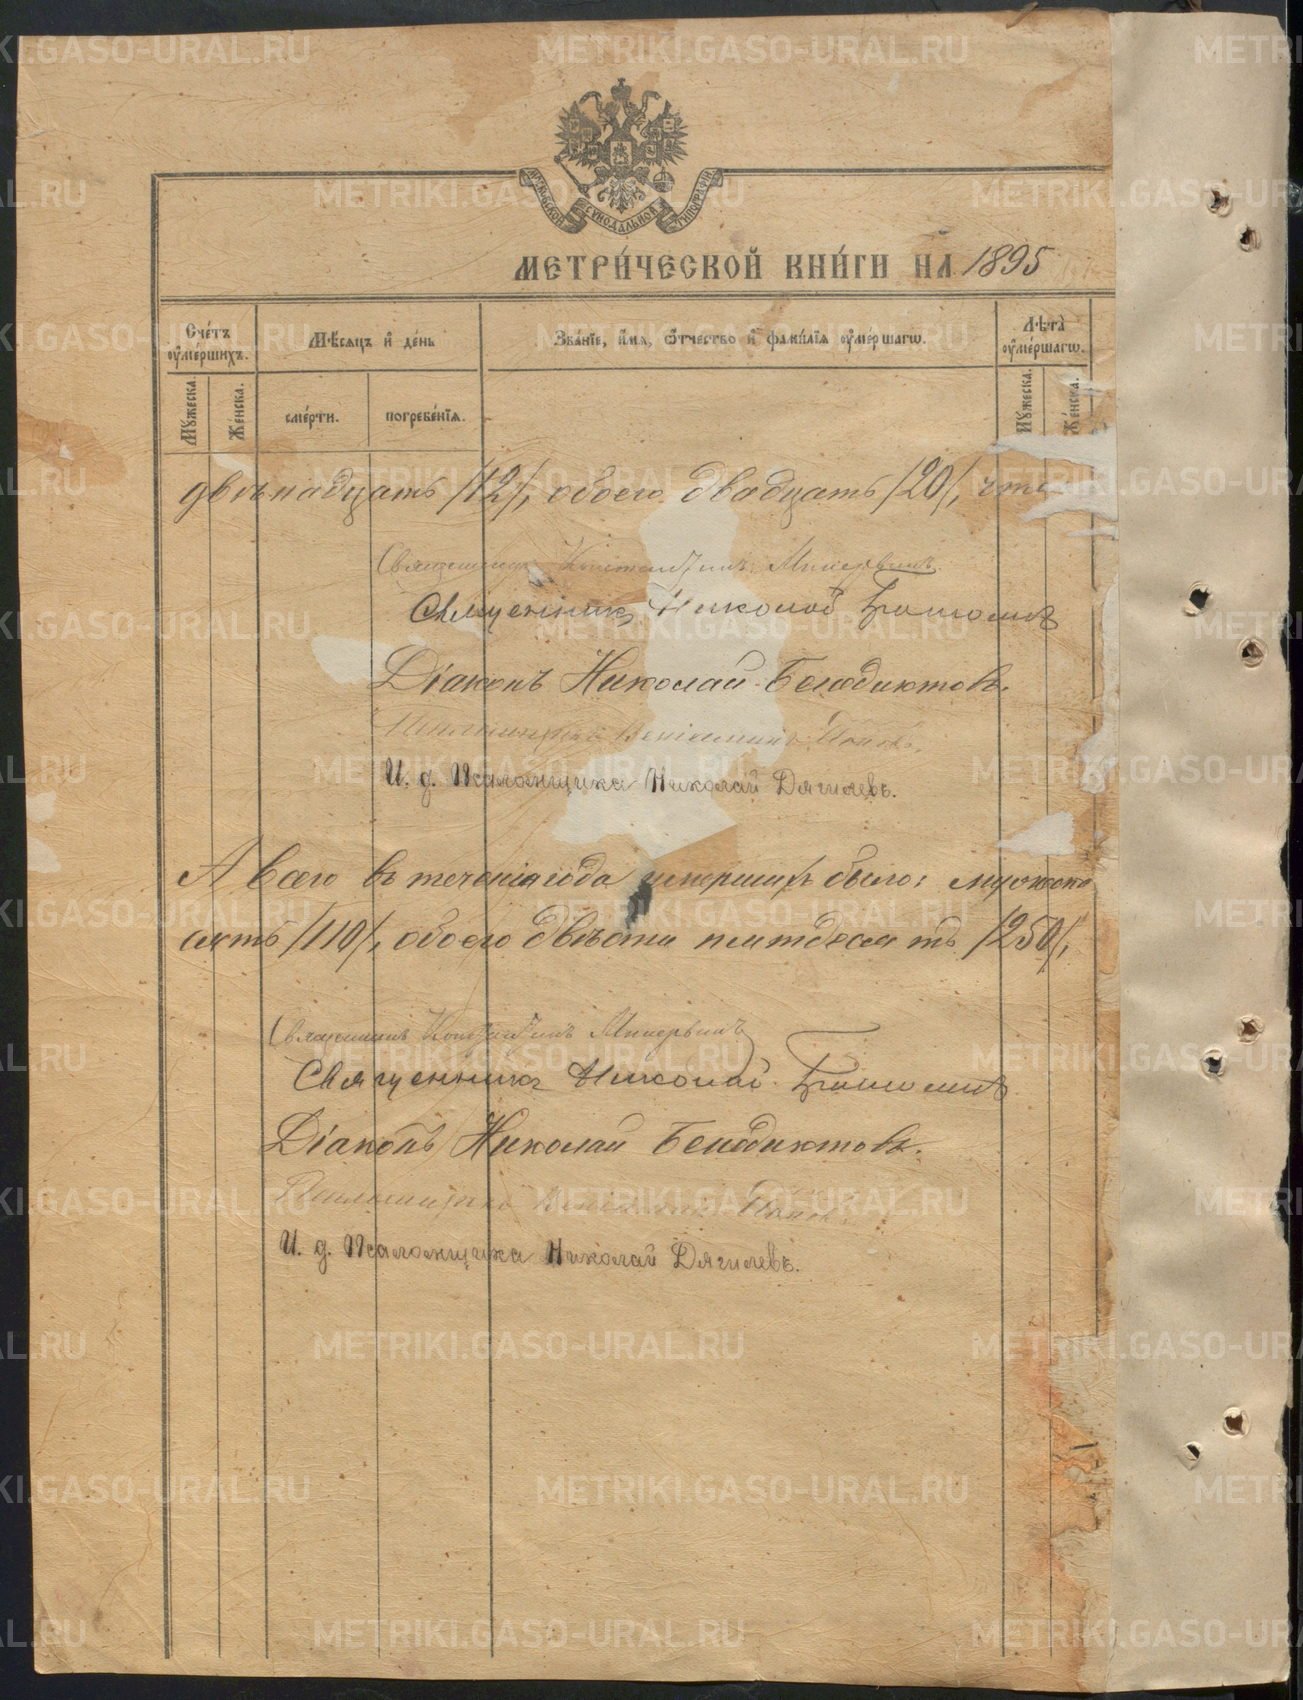 МОСКОВСКОЙ СѴНОДАЛЬНОЙ ТИПОГРАФІИ
МЕТРИ́ЧЕСКОЙ КНИ́ГИ НА 1895
Сче́тъ оу҆ме́ршихъ.
Мѣ́сяцъ и҆ де́нь
Зва́нїе, и҆́мя, ѻ҆́тчество и҆ фами́лїя оу҆ме́ршагѡ.
Лѣ́та оу҆ме́ршагѡ.
Мꙋ́жеска.
Же́нска.
сме́рти.
погребе́нїя.
Мꙋ́жеска.
Же́нска.
двѣнадцать /12/, обоего двадцать /20/, что
Священникъ Константинъ Минервинъ.
Священникъ Николай
Діаконъ Николай Бенедиктовъ.
Псаломщикъ Веніаминъ Поповъ.
И. д. Псаломщика Николай Дягилевъ.
А всего въ теченіи года умершихъ было: мужеска
сять /110/, обоего двѣсти пятдесятъ /250/,
Священникъ Константинъ Минервинъ
Священникъ Николай
Діаконъ Николай Бенедиктовъ.
Псаломщикъ Веніаминъ Поповъ.
И. д. Псаломщика Николай Дягилевъ.
METRIKI.GASO-URAL.RU